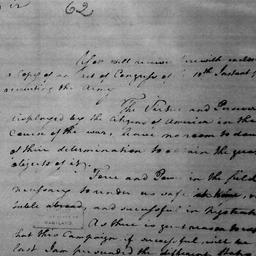 62
You will receive herewith enclosed
a Copy of an Act of Congress of 18th Instant for
recruiting the Army
The Virtue and
displayed by the Citizens of America in the
Course of the war, leave no room to doubt
of their determination to obtain the great
objects of it.
Force and in the field
necessary to render us safe at home, re
table abroad, and successful in Negotiat
As there is great reason to
that this Campaign if successful will be
last I am persuaded the different States